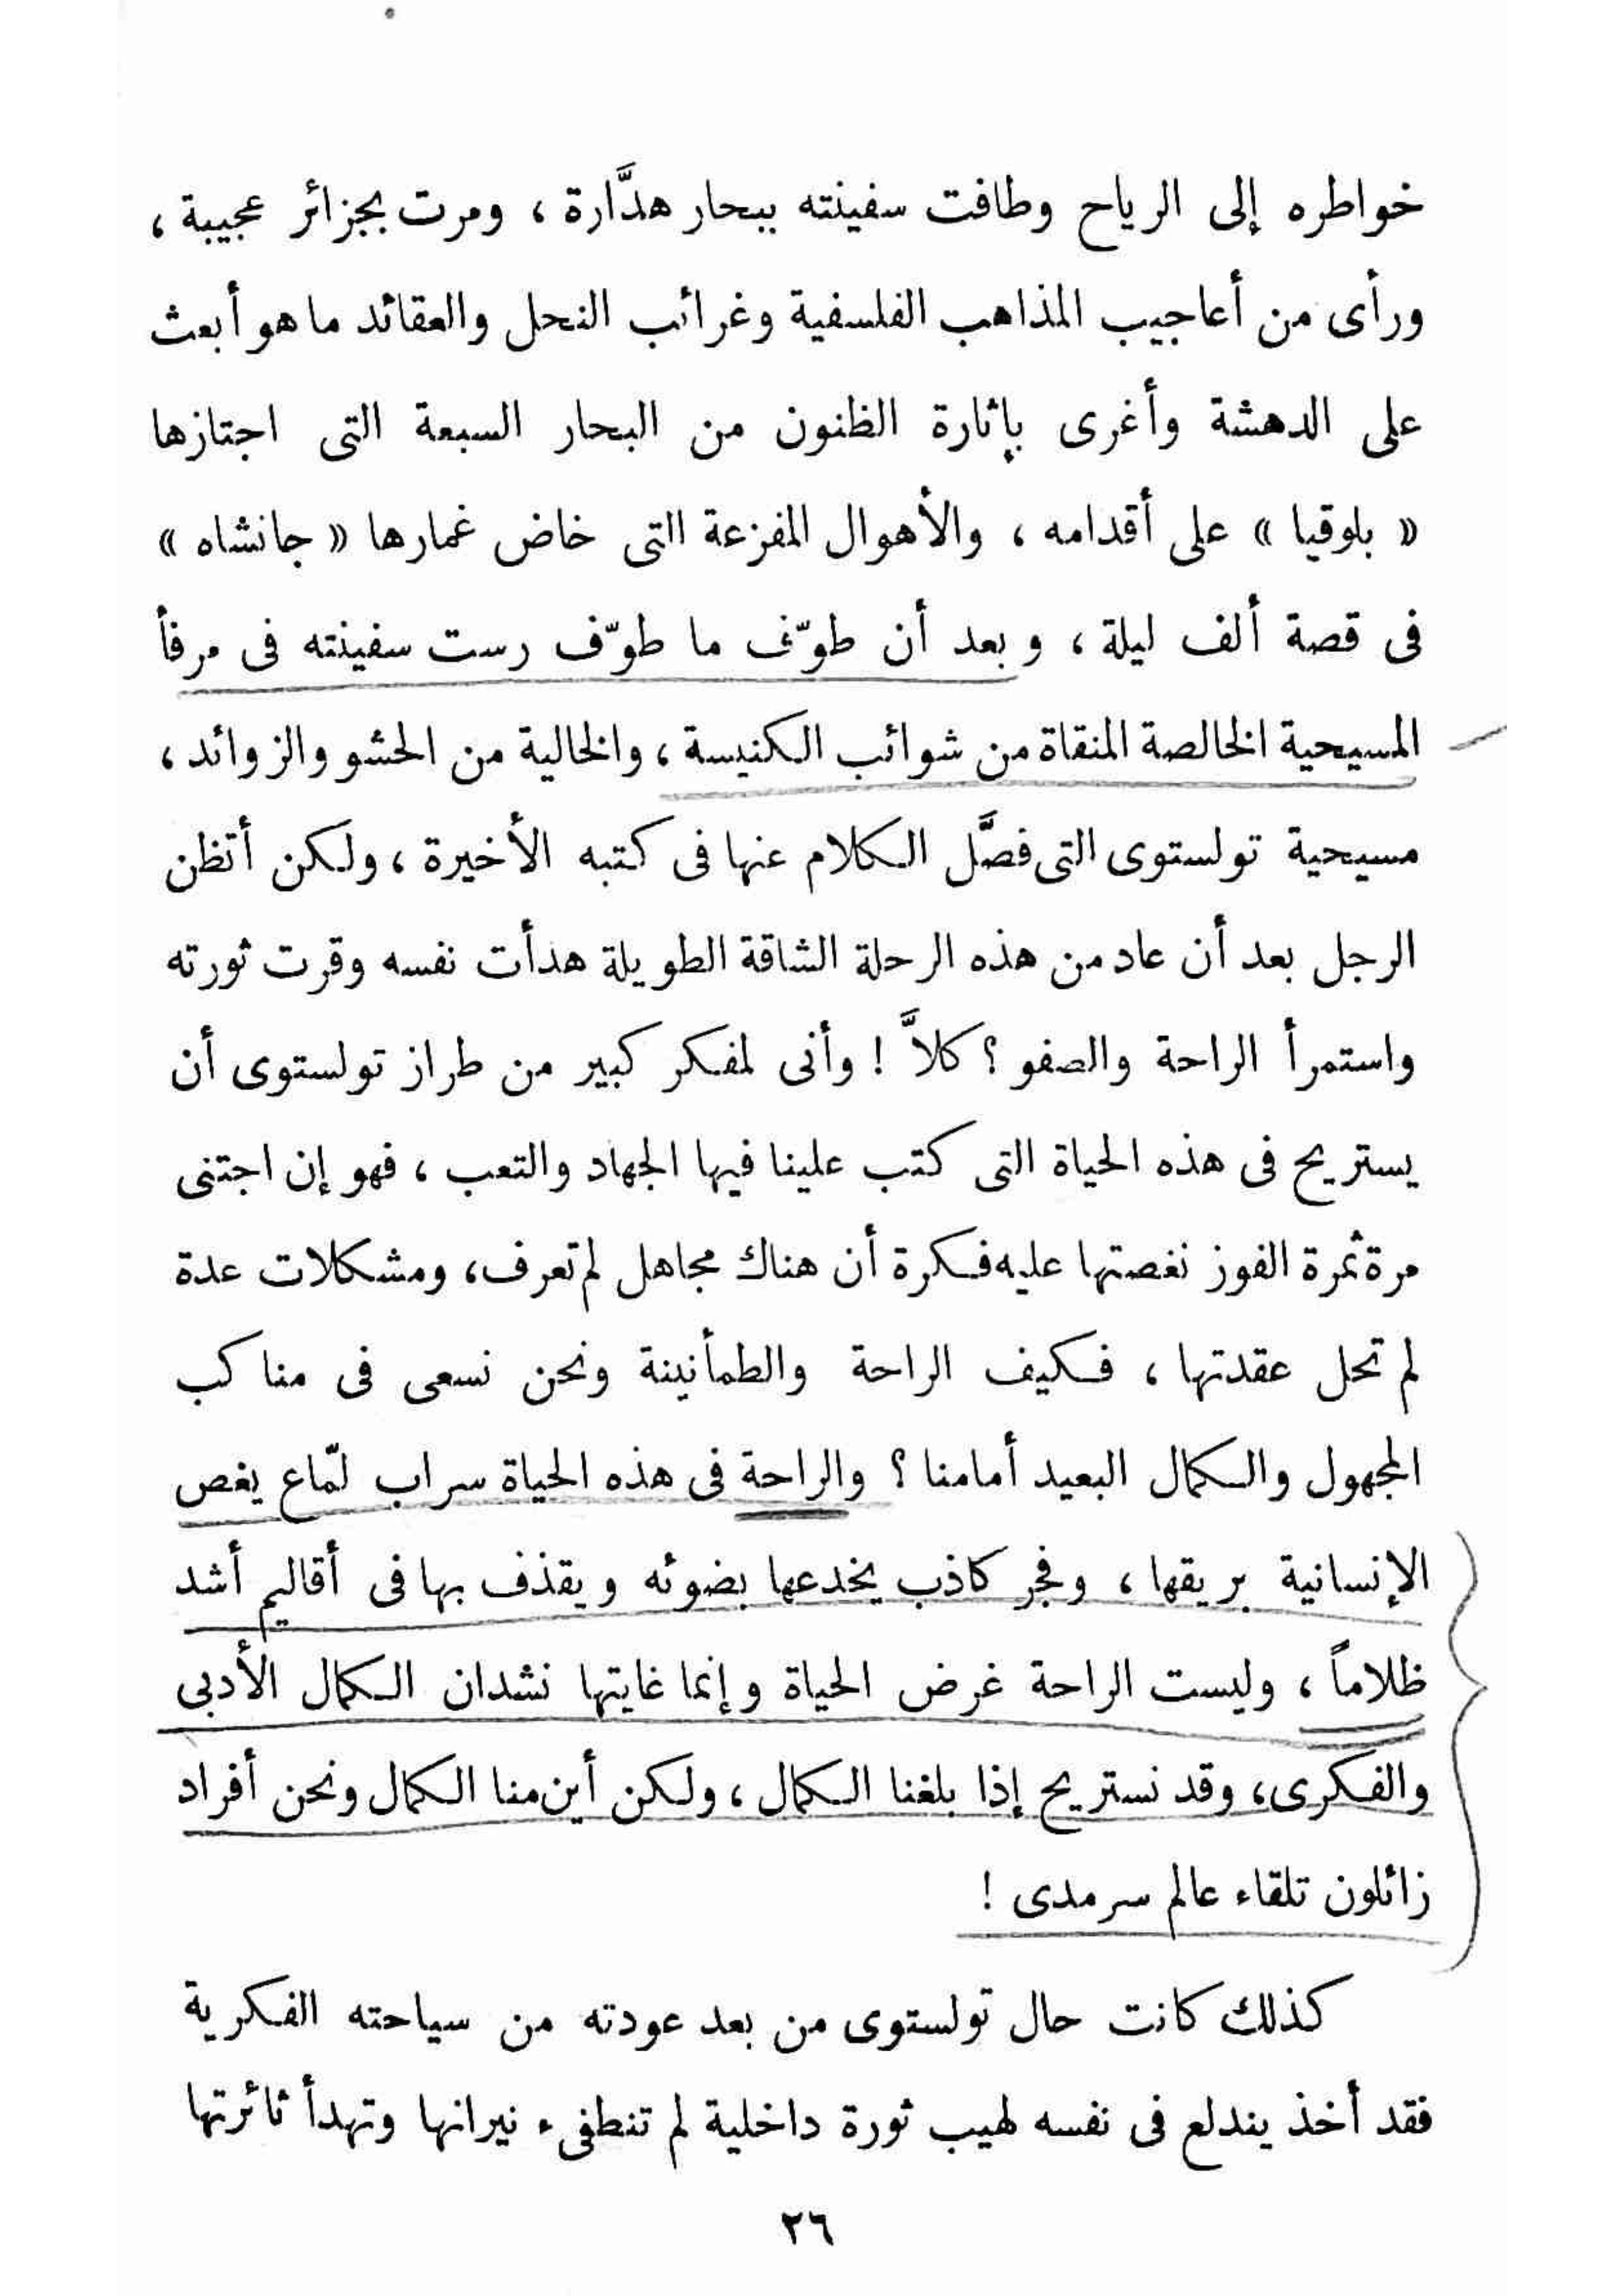 خواطره إلى الرياح وطافت سفينته ببحار هدَّارة ، ومرت بجزائر عجيبة ،
ورأى من أعاجيب المذاهب الفلسفية وغرائب النحل والعقائد ما هو أبعث
على الدهشة وأغرى بإثارة الظنون من البحار السبعة التى اجتازها
« بلوقيا » على أقدامه ، والأهوال المفزعة التى خاض غمارها « جانشاه »
فى قصة ألف ليلة ، وبعد أن طوّف ما طوّف رست سفينته فى مرفأ
المسيحية الخالصة المنقاة من شوائب الكنيسة ، والخالية من الحشو والزوائد ،
مسيحية تولستوى التى فصَّل الكلام عنها فى كتبه الأخيرة ، ولكن أتظن
الرجل بعد أن عاد من هذه الرحلة الشاقة الطويلة هدأت نفسه وقرت ثورته
واستمرأ الراحة والصفو ؟ كلاَّ ! وأنى لمفكر كبير من طراز تولستوى أن
يستريح فى هذه الحياة التى كتب علينا فيها الجهاد والتعب ، فهو إن اجتنى
مرة ثمرة الفوز نغصتها عليه فكرة أن هناك مجاهل لم تعرف، ومشكلات عدة
لم تحل عقدتها ، فكيف الراحة والطمأنينة ونحن نسعى فى مناكب
المجهول والكمال البعيد أمامنا ؟ والراحة فى هذه الحياة سراب لمّاع يغص
الإنسانية بريقها ، وفجر كاذب يخدعها بضوئه ويقذف بها فى أقاليم أشد
ظلاماً ، وليست الراحة غرض الحياة وإنما غايتها نشدان الكمال الأدبى
والفكرى، وقد نستريح إذا بلغنا الكمال ، ولكن أين منا الكمال ونحن أفراد
زائلون تلقاء عالم سرمدى !
كذلك كانت حال تولستوى من بعد عودته من سياحته الفكرية
فقد أخذ يندلع فى نفسه لهيب ثورة داخلية لم تنطفىء نيرانها وتهدأ ثائرتها
٢٦